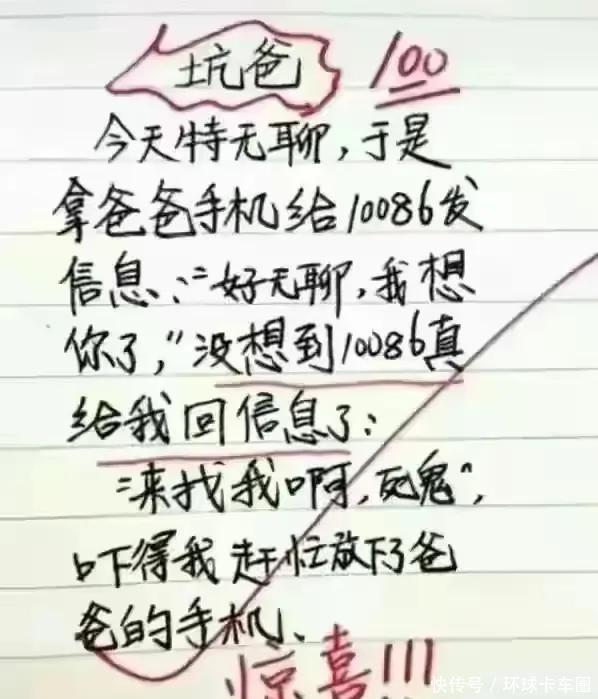 坑爸 100
今天特无聊，于是
拿爸爸手机给10086发
信息："好无聊，我想
你了，"没想到10086真
给我回信息了：
"来找我啊，死鬼"，
吓得我赶忙放下了爸
爸的手机、
惊喜!!!
快传号／环球卡车圈